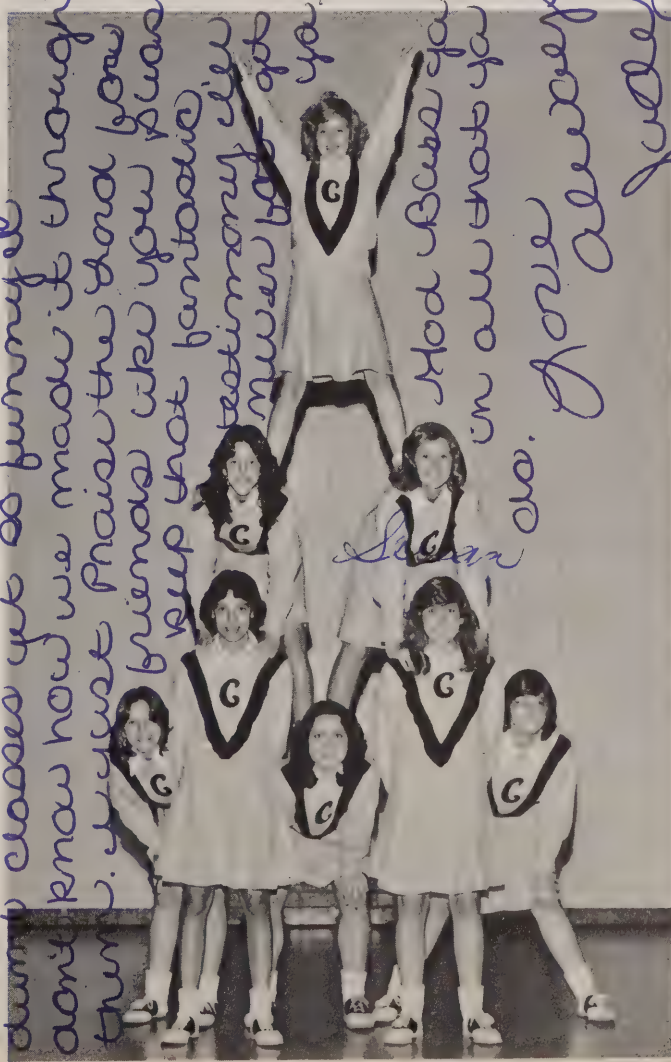 classes get so funny I
don't know how we made it through
them. I just Praise the Lord for
friends like you. Please
keep that fantastic
testimony I'll
never forget
ya
God Bless ya
in all that ya
do.
Love
Always
Susan
C
C
C
C
C
C
C
C